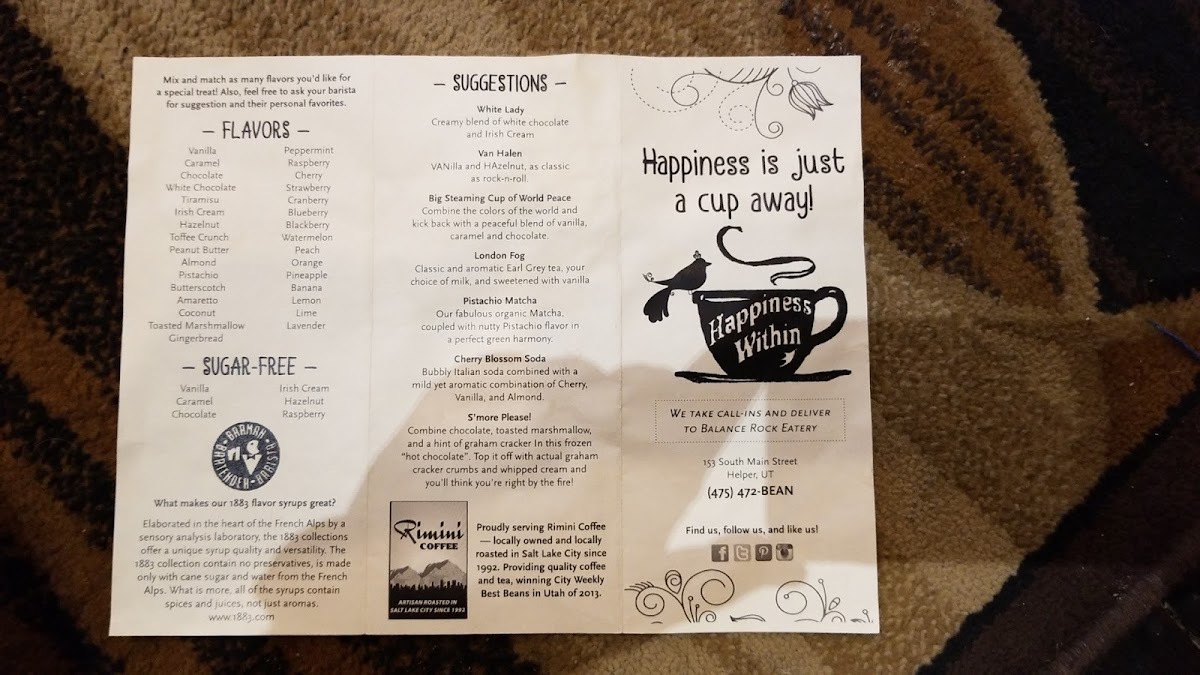 Mix and match as many flavors you'd like for
a special treat! Also, feel free to ask your barista
for suggestion and their personal favorites.
— FLAVORS —
Vanilla
Caramel
Chocolate
White Chocolate
Tiramisu
Irish Cream
Hazelnut
Toffee Crunch
Peanut Butter
Almond
Pistachio
Butterscotch
Amaretto
Coconut
Toasted Marshmallow
Gingerbread
Peppermint
Raspberry
Cherry
Strawberry
Cranberry
Blueberry
Blackberry
Watermelon
Peach
Orange
Pineapple
Banana
Lemon
Lime
Lavender
— SUGAR-FREE —
Vanilla
Caramel
Chocolate
Irish Cream
Hazelnut
Raspberry
BARMAN • BARISTA • BARTENDER
What makes our 1883 flavor syrups great?
Elaborated in the heart of the French Alps by a
sensory analysis laboratory, the 1883 collections
offer a unique syrup quality and versatility. The
1883 collection contain no preservatives, is made
only with cane sugar and water from the French
Alps. What is more, all of the syrups contain
spices and juices, not just aromas.
www.1883.com
— SUGGESTIONS —
White Lady
Creamy blend of white chocolate
and Irish Cream
Van Halen
VANilla and HAzelnut, as classic
as rock-n-roll.
Big Steaming Cup of World Peace
Combine the colors of the world and
kick back with a peaceful blend of vanilla,
caramel and chocolate.
London Fog
Classic and aromatic Earl Grey tea, your
choice of milk, and sweetened with vanilla
Pistachio Matcha
Our fabulous organic Matcha,
coupled with nutty Pistachio flavor in
a perfect green harmony.
Cherry Blossom Soda
Bubbly Italian soda combined with a
mild yet aromatic combination of Cherry,
Vanilla, and Almond.
S'more Please!
Combine chocolate, toasted marshmallow,
and a hint of graham cracker In this frozen
"hot chocolate". Top it off with actual graham
cracker crumbs and whipped cream and
you'll think you're right by the fire!
Rimini
COFFEE
ARTISAN ROASTED IN
SALT LAKE CITY SINCE 1992
Proudly serving Rimini Coffee
— locally owned and locally
roasted in Salt Lake City since
1992. Providing quality coffee
and tea, winning City Weekly
Best Beans in Utah of 2013.
Happiness is just
a cup away!
Happiness
Within
WE TAKE CALL-INS AND DELIVER
TO BALANCE ROCK EATERY
153 South Main Street
Helper, UT
(475) 472-BEAN
Find us, follow us, and like us!